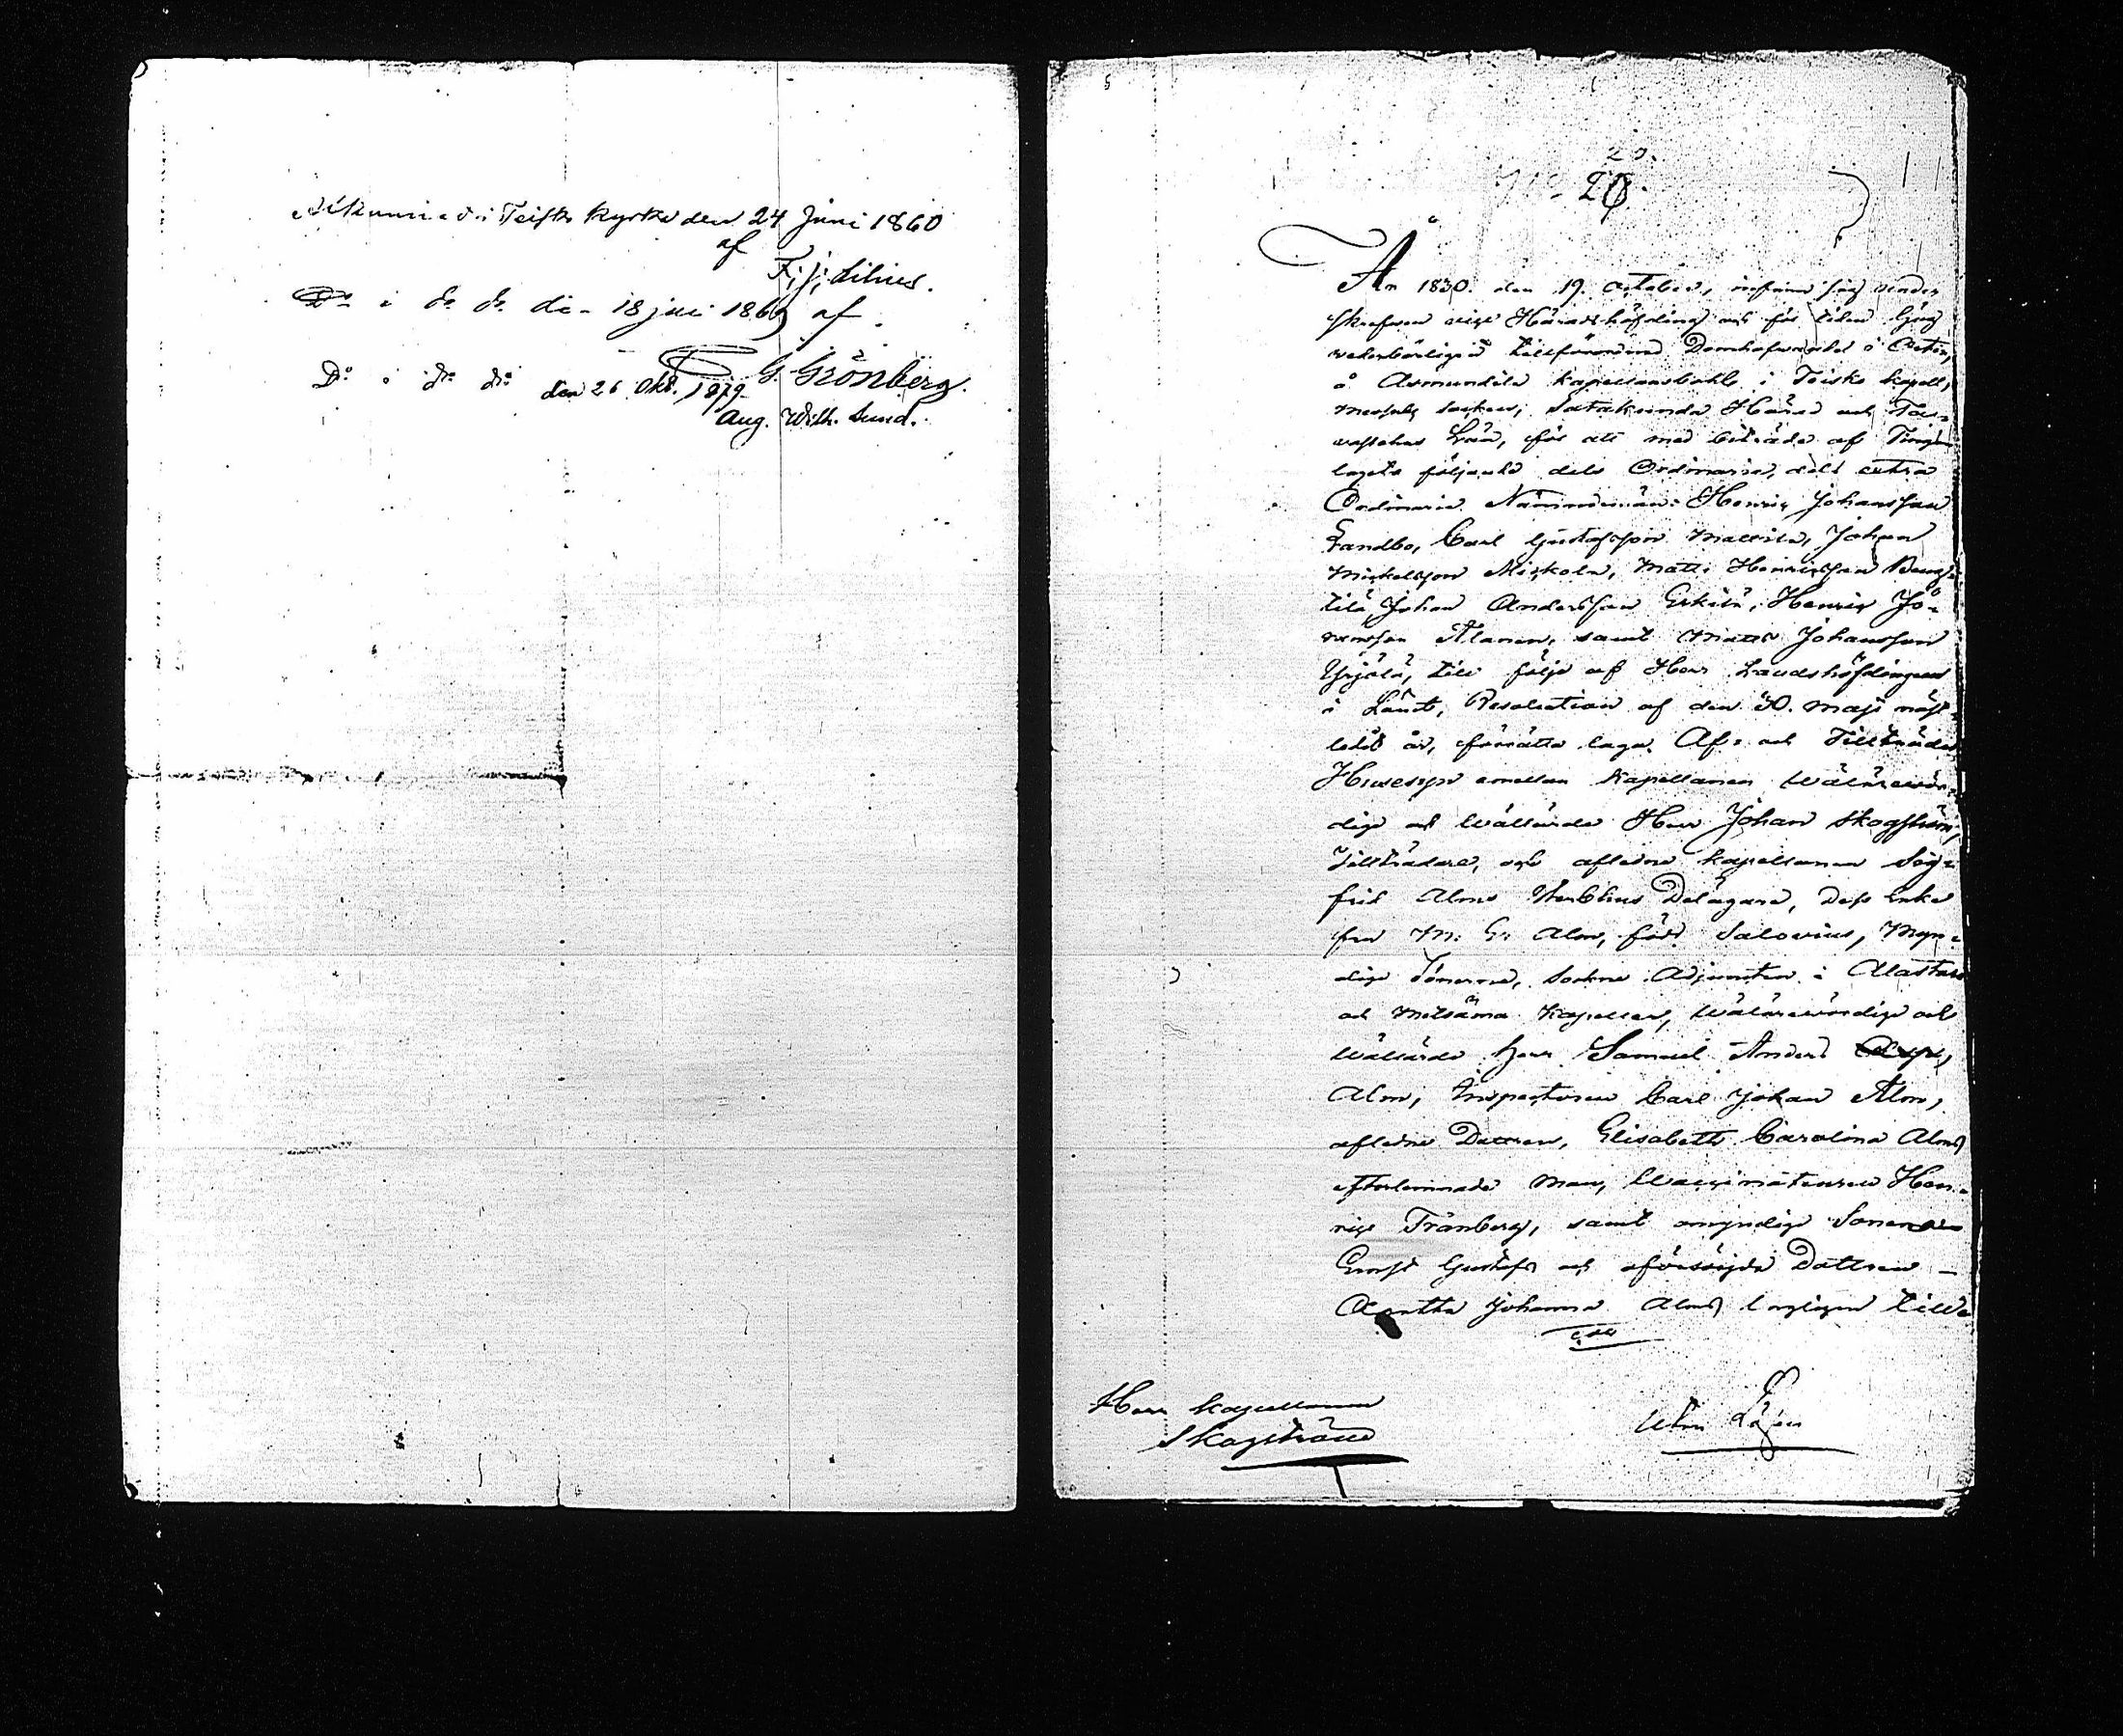 i Teisko kyrka den 24 Juni 1860
af
F. J. Lilius.
Do i do do de 18 juni 1869 af
G. Grönberg.
Do i do do den 26 Okt. 1879
Aug. Wilh. Lund.
20.
No 20.
År 1830. den 19. october, infann sig under
skrefven vice Häradshöfding och för tiden
vederbörligen tillförordnad Domhafvande i
å Asmundila kapellansbohl i Teisko kapell,
Messuby socken, Satakunda Härad och Ta-
vastehus Län, för att med biträde af Tings
lagets följande dels Ordinarie, dels extra
Ordinarie Nämndemän: Henric Johansson
Sandbo, Carl Gustafsson Mattila, Johan
Mickelsson Miskola, Matts Henricsson
tilä, Johan Andersson Erkilä, Henric Jö-
ransson Alanen, samt Matts Johansson
Yrjölä, till följe af Herr Landshöfdingens
i Länet, Resolution af den 30. Maji näst-
ledet år, förrätta laga Af- och Tillträdes
Husesyn emellan Kapellanen Wälärevör-
dige och Wällärde Herr Johan Skogström,
Tillträdare, och afledne kapellanen Sig-
frid Alms Sterbhus Delägare, dess Enka
fru M: E: Alm, född Salovius, Myn-
dige Sönerne, Sockne Adjuncten i Alastaro
och Metsämaa Kapeller, Wälärevördige och
Wällärde herr Samuel Anders
Alm, Inspectoren Carl Johan Alm,
aflidne Dottren, Elisabeth Carolina Alms
efterlemnade man, Vaccinateuren Hen-
ric Tranberg, samt omyndige Sonen
Ernst Gustaf och oförsörjda Dottren –
Agatha Johanna Alm,
Herr Kapellanen
Skogström
Utan Lösen